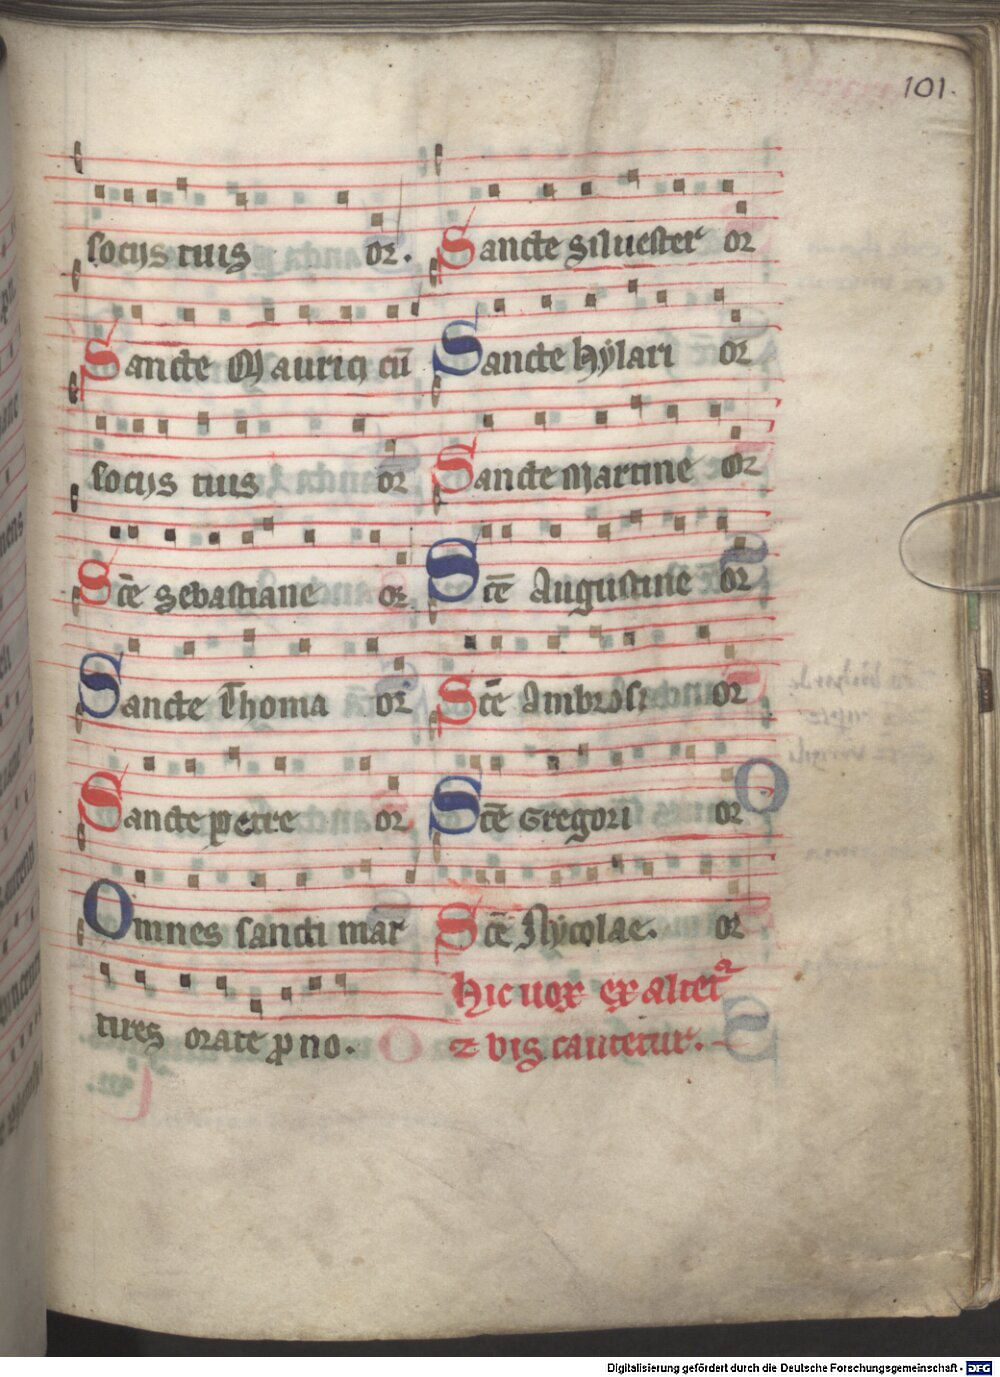 101.
socijs tuis or.
Sancte Mauricij cū
socijs tuis or
Sc̄e Sebastiane or
Sancte Thoma or
Sancte petre or
Omnes sancti mar
tires orate p no.
Sancte Siluester or
Sancte hylari or
Sancte martine or
Sc̄e Augustine or
Sc̄e Ambrosi or
Sc̄e Gregori or
Sc̄e Nycolae. or
Hic uox exaltet᷑
⁊ bis cantetur.
Digitalisierung gefördert durch die Deutsche Forschungsgemeinschaft - DFG